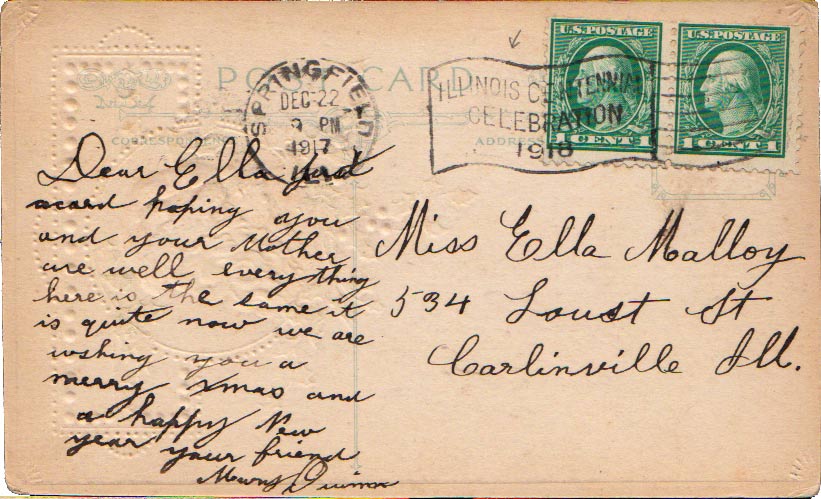 POST CARD
CORRESPONDENCE
ADDRESS
SPRINGFIELD
DEC 22
9 PM
1917
ILL.
ILLINOIS CENTENNIAL
CELEBRATION
1918
U.S. POSTAGE
1 CENT 1
U.S. POSTAGE
1 CENT 1
Dear Ella just
acard hoping you
and your Mother
are well everything
here is the same it
is quite now we are
wshing you a
merry xmas and
a happy New
year your friend
Miss Ella Malloy
534 Loust St
Carlinville Ill.